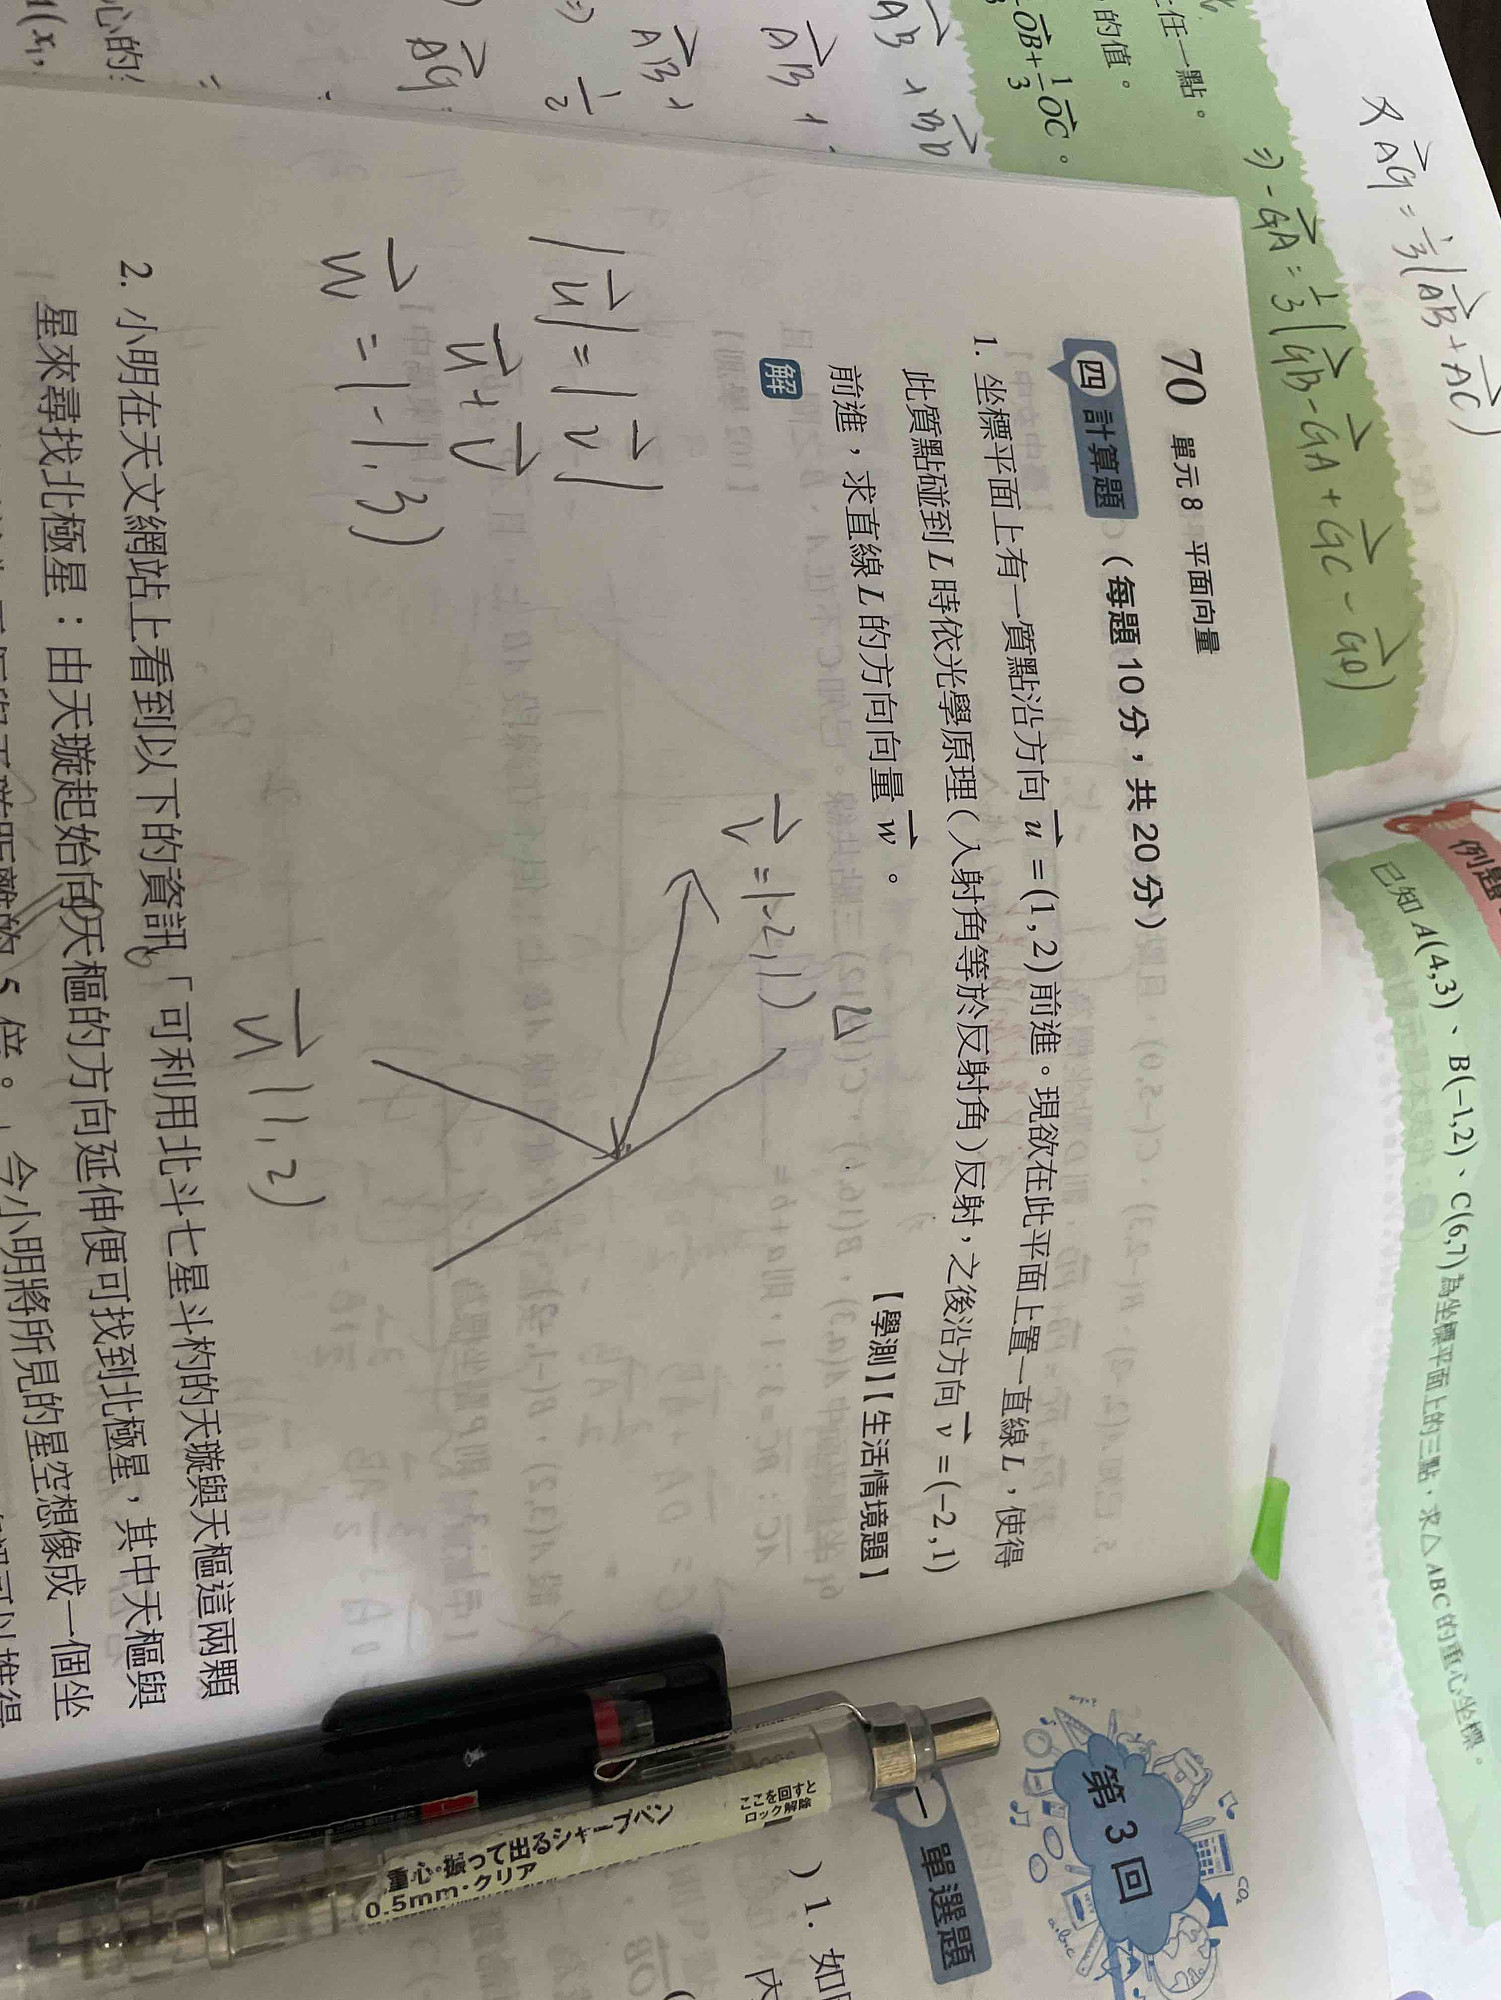 70 單元 8 平面向量
四 計算題 (每題 10 分，共 20 分)
1. 坐標平面上有一質點沿方向 u = (1, 2) 前進。現欲在此平面上置一直線 L，使得
此質點碰到 L 時依光學原理(入射角等於反射角)反射，之後沿方向 v = (−2, 1)
前進，求直線 L 的方向向量 w。
【學測】【生活情境題】
解
v = (-2, 1)
L
|u| = |v|
u + v
w = (-1, 3)
u (1, 2)
2. 小明在天文網站上看到以下的資訊「可利用北斗七星斗杓的天璇與天樞這兩顆
星來尋找北極星：由天璇起始向天樞的方向延伸便可找到北極星，其中天樞與
5 倍。」今小明將所見的星空想像成一個坐
AG = 1/3 (AB + AC)
⇒ -GA = 1/3 (GB - GA + GC - GA)
任一點。
的值。
OB + 1/3 OC。
AB + BD
AB +
AB +
1/2
AG
心的
例題
已知 A(4,3)、B(−1,2)、C(6,7) 為坐標平面上的三點，求△ABC 的重心坐標。
第 3 回
CO₂
一 單選題
) 1. 如
內
ここを回すと
ロック解除
重心・振って出るシャープペン
0.5mm・クリア